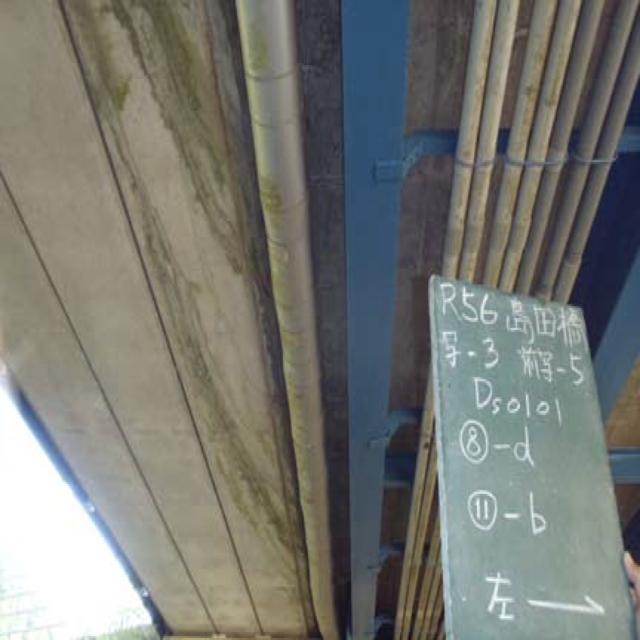 R56 島田橋
写-3 旅写-5
Ds0101
⑧-d
⑪-b
左→